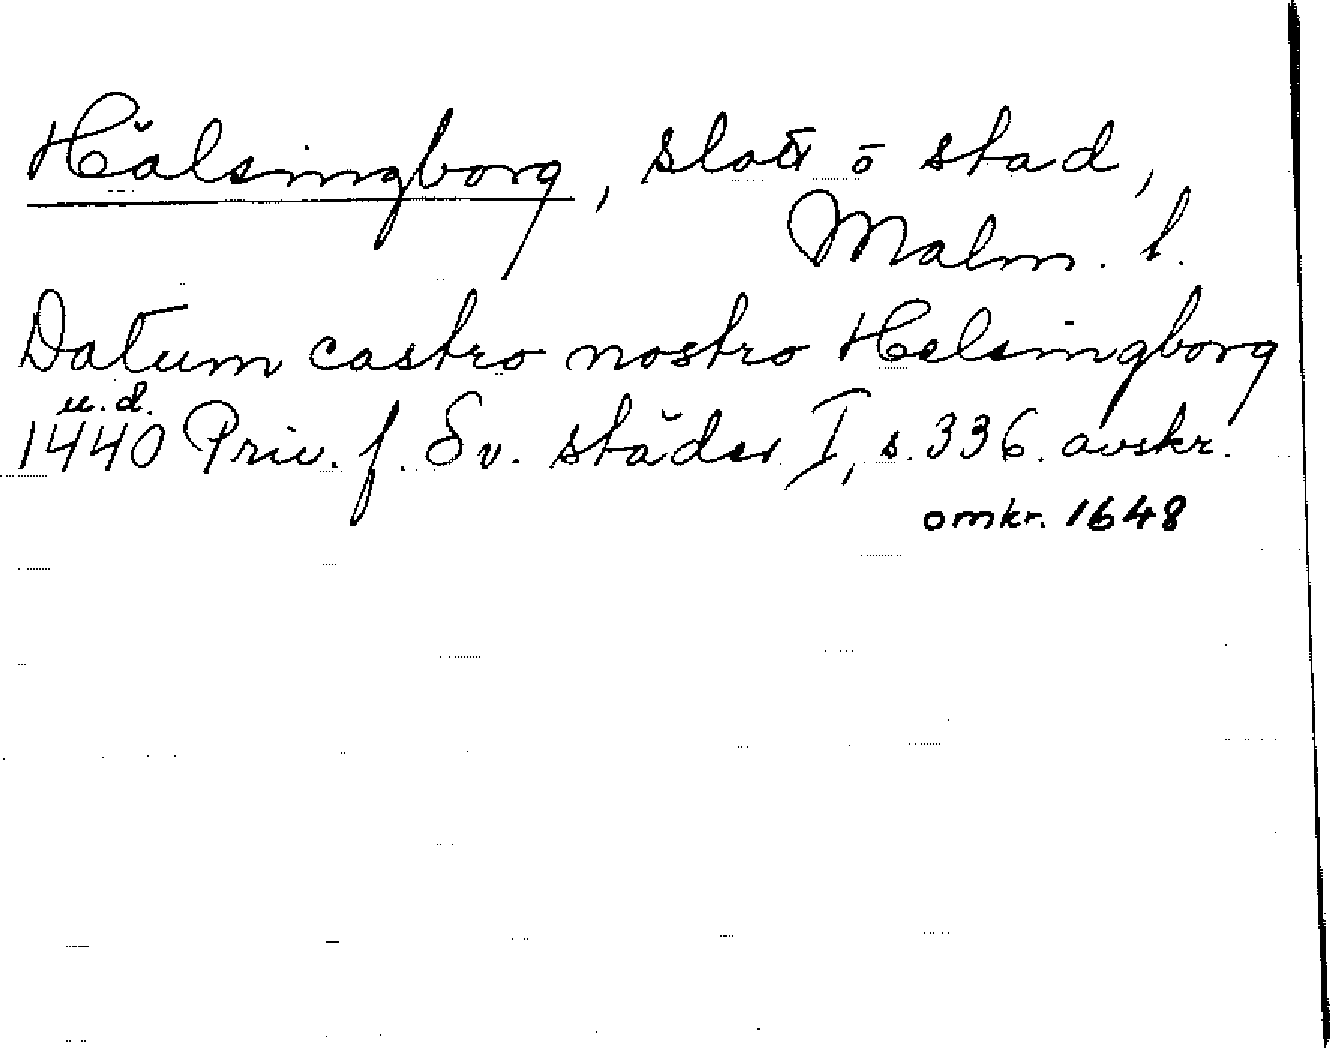 Hälsingborg, slott o stad,
Malm. l.
Datum castro nostro Helsingborg
u.d.
1440 Priv. f. Sv. städer I, s. 336. avskr.
omkr. 1648